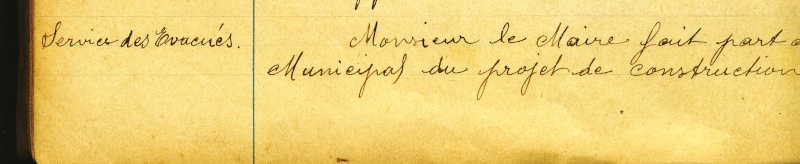 Service des Evacués.
Monsieur le Maire fait part
Municipal du projet de construction